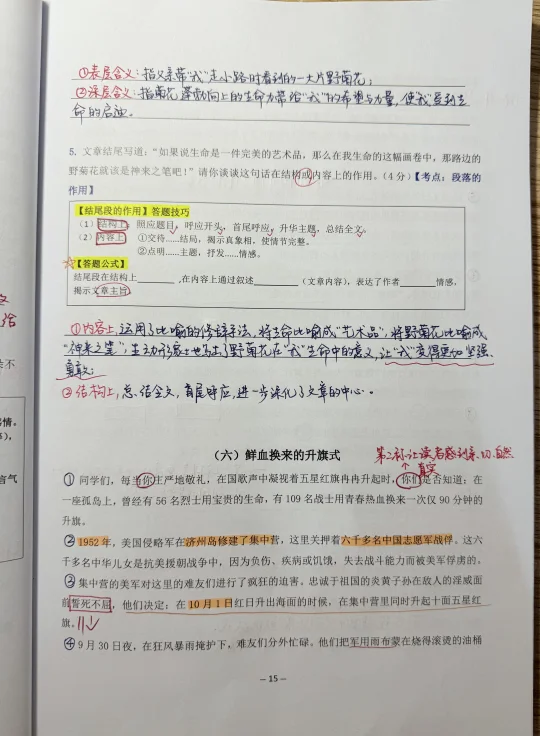 ①表层含义：指父亲带“我”走小路时看到的一大片野菊花；
②深层含义：指菊花蓬勃向上的生命力带给“我”的希望与力量，使“我”受到生
命的启迪。
5. 文章结尾写道：“如果说生命是一件完美的艺术品，那么在我生命的这幅画卷中，那路边的
野菊花就该是神来之笔吧！”请你谈谈这句话在结构或内容上的作用。（4 分）【考点：段落的
作用】
【结尾段的作用】答题技巧
（1）结构上：照应题目，呼应开头，首尾呼应，升华主题，总结全文。
（2）内容上：①交待……结局，揭示真象相，使情节完整。
②点明……主题，抒发……情感。
【答题公式】
结尾段在结构上________，在内容上通过叙述________（文章内容），表达了作者________情感，
揭示文章主旨。
①内容上，运用了比喻的修辞手法，将生命比喻成“艺术品”，将野菊花比喻成
“神来之笔”，生动形象地写出了野菊花在“我”生命中的意义，让“我”变得更加坚强、
勇敢；
②结构上，总结全文，首尾呼应，进一步深化了文章的中心。
（六）鲜血换来的升旗式
第二人称，让读者感到亲切、自然
真实
① 同学们，每当你庄严地敬礼，在国歌声中凝视着五星红旗冉冉升起时，你们是否知道：在
一座孤岛上，曾经有 56 名烈士用宝贵的生命，有 109 名战士用青春热血换来一次仅 90 分钟的
升旗。
② 1952 年，美国侵略军在济州岛修建了集中营，这里关押着六千多名中国志愿军战俘。这六
千多名中华儿女是抗美援朝战争中，因为负伤、疾病或饥饿，失去战斗能力而被美军俘虏的。
③ 集中营的美军对这里的难友们进行了疯狂的迫害。忠诚于祖国的炎黄子孙在敌人的淫威面
前誓死不屈，他们决定：在 10 月 1 日红日升出海面的时候，在集中营里同时升起十面五星红
旗。
④ 9 月 30 日夜，在狂风暴雨掩护下，难友们分外忙碌。他们把军用雨布蒙在烧得滚烫的油桶
— 15 —